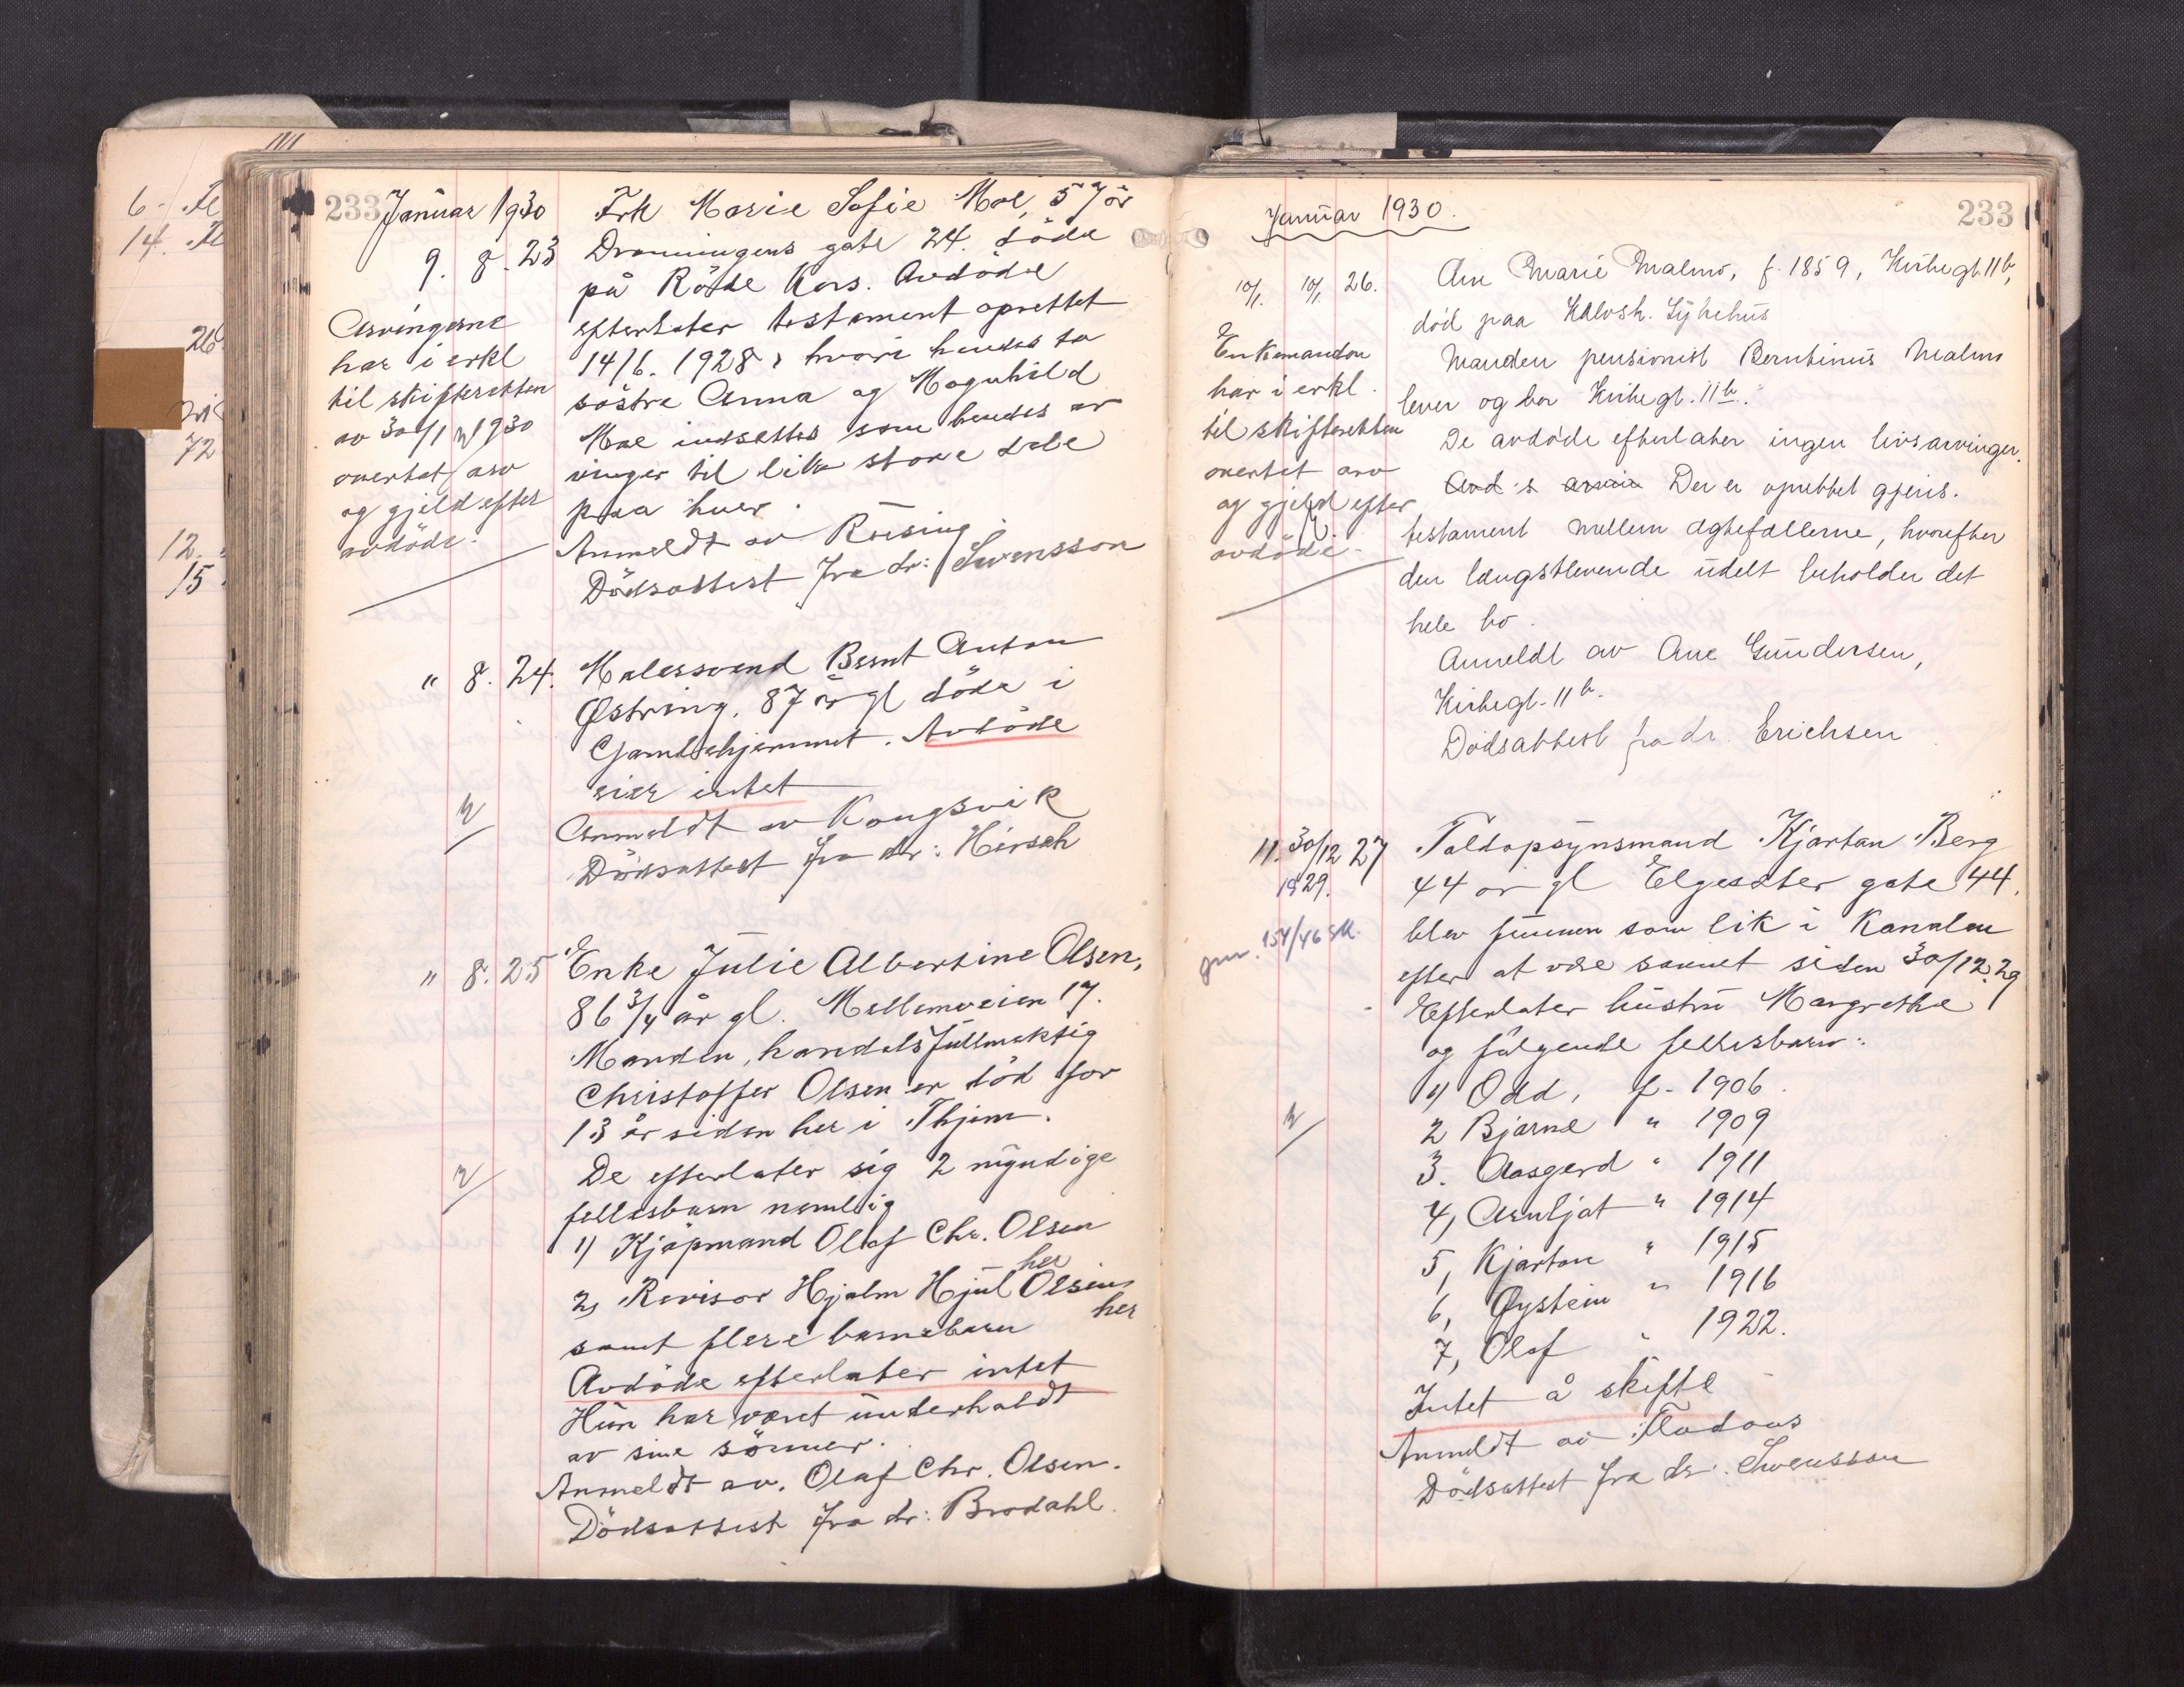 6
14.
26
72
12.
15
233 Januar 1930
9. 8. 23
Frk Marie Sofie Moe, 57 år
Dronningens gate 24. döde
på Röde Kors. Avdöde
efterlater testament oprettet
14/6. 1928, hvori hendes to
söstre Anna og Magnhild
Moe indsettes som hendes ar
vinger til like store dele
paa hver.
Anmeldt av Rösing
Dödsattest fra dr: Svensson
Arvingerne
har i erkl
til skifteretten
av 30/1 1930
overtat arv
og gjeld efter
avdöde.
" 8. 24.
Malersvend Bernt Anton
Østring, 87 år gl döde i
Gamlehjemmet. Avdöde
eier intet
Anmeldt av Kongsvik
Dödsattest fra dr: Hirsch
" 8. 25
Enke Julie Albertine Olsen,
86 3/4 år gl. Mellemveien 17.
Manden, handelsfullmektig
Christoffer Olsen er död for
13 år siden her i Thjem.
De efterlater sig 2 myndige
fellesbarn nemlig
1) Kjöpmand Olaf Chr. Olsen
her
2, Revisor Hjalm Hjul Olsen
her
samt flere barnebarn
Avdöde efterlater intet
Hun har været underholdt
av sine sönner.
Anmeldt av. Olaf Chr. Olsen.
Dödsattest fra dr: Brodahl.
Januar 1930.
233
10/1. 10/1. 26.
Ane Marie Malmo, f. 1859, Kirkegt. 11b,
död paa Kalvsk. Sykehus
Manden pensionist Berntinus Malmo
lever og bor Kirkegt. 11b.
De avdöde efterlater ingen livsarvinger.
Avd's Der er oprettet gjens.
testament mellem ægtefællerne, hvorefter
den længstlevende udelt beholder det
hele bo.
Anmeldt av Ane Gundersen,
Kirkegt. 11b.
Dödsattest fra dr. Erichsen
Enkemanden
har i erkl.
til skifteretten
overtat arv
og gjeld efter
avdöde.
11. 30/12 27
1929.
154/46 sk.
Toldopsynsmand Kjartan Berg
44 år gl Elgeseter gate 44.
blev funnen som lik i Kanalen
efter at være savnet siden 30/12.29
Efterlater hustru Margrethe
og følgende fellesbarn:
1) Odd, f. 1906.
2 Bjarne " 1909
3. Aasgerd " 1911
4, Arnljot " 1914
5, Kjartan " 1915
6, Øystein " 1916
7, Olaf " 1922.
Intet å skifte
Anmeldt av Flodaas
Dödsattest fra dr. Svensson